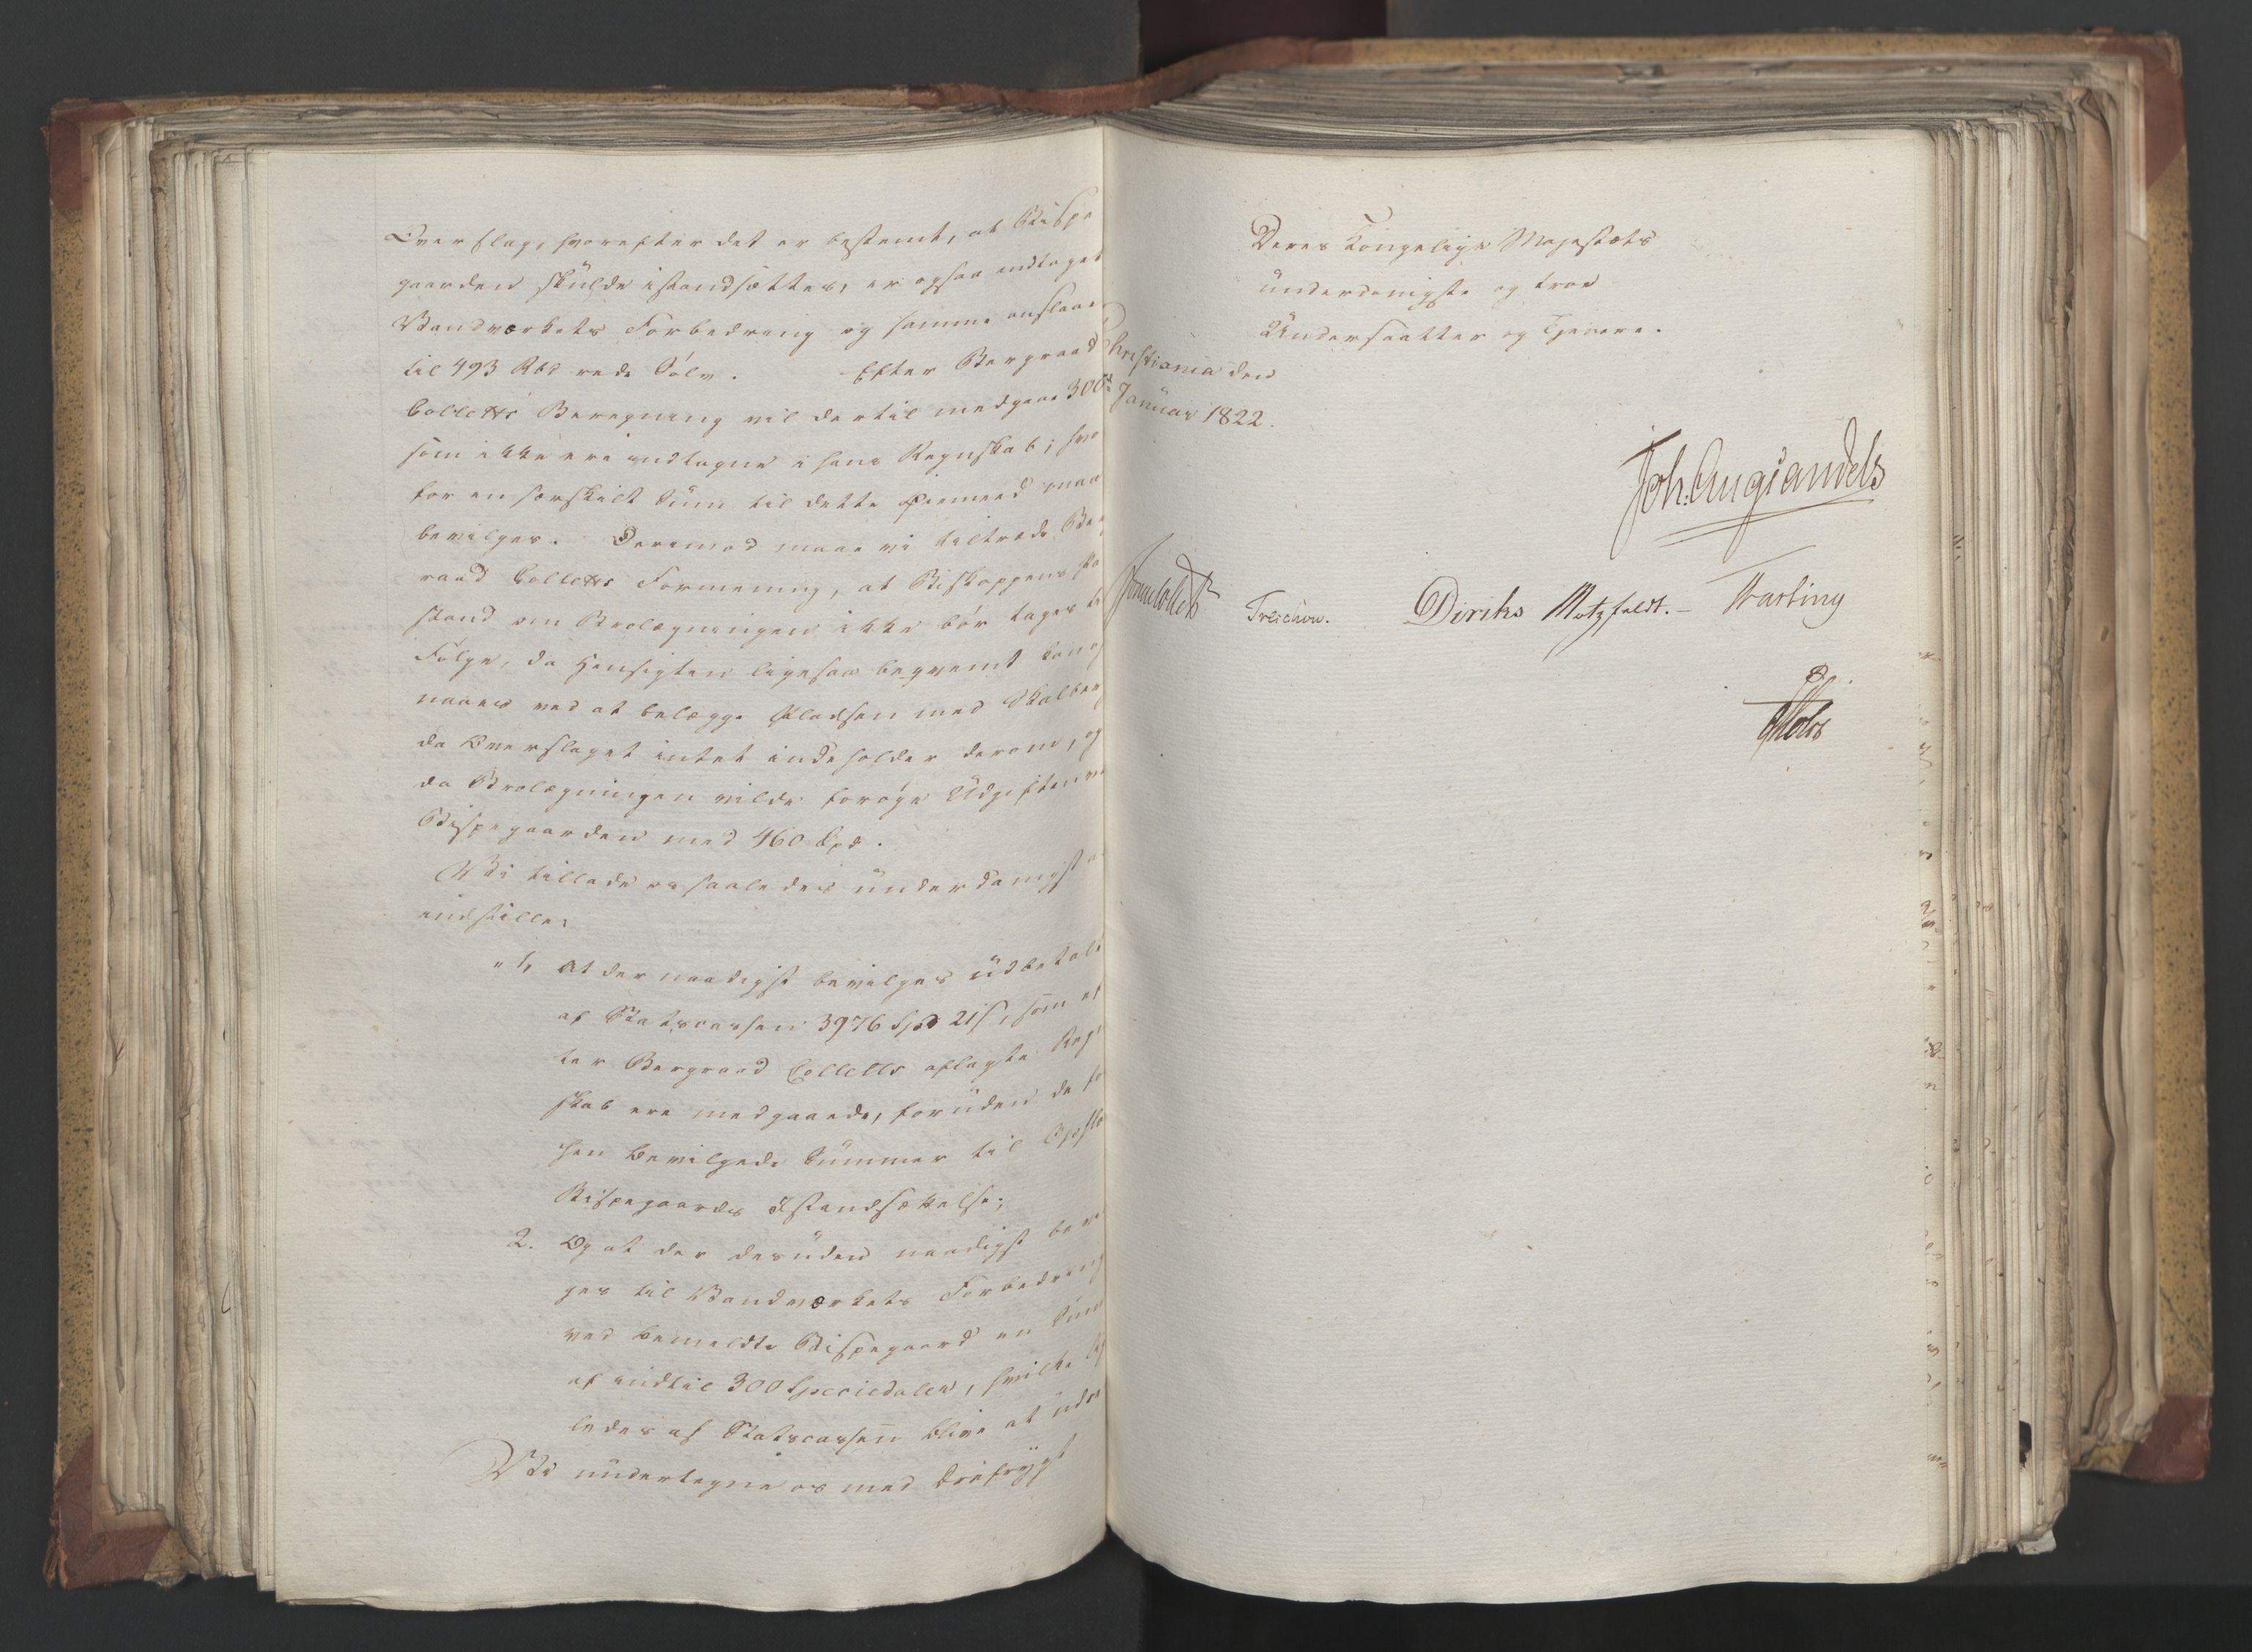 Overslag, hvorefter det er bestemt, at Bispe
gaarden skulde istandsættes, er ogsaa indtaget
Vandværkets Forbedring og samme anslaaet
til 493 Rbd rede Sølv. Efter Bergraad
Colletts Beregning vil dertil medgaae 300
som ikke ere indtagne i hans Regnskab; hvo
for en særskilt Sum til dette Øiemeed maa
bevilges. Derimod maae vi tiltræde Be
raad Colletts Formening, at Biskoppens
stand om Brolægningen ikke bør tages til
Følge, da Hensigten ligesaa beqvemt kan
naaes ved at belægge Pladsen med
da Overslaget intet indeholder derom, og
da Brolægningen vilde forøge Udgiften ve
Bispegaarden med 460 Spd.
Vi tillade os saaledes underdanigst a
indstille:
" 1, At der naadigst bevilges udbetalt
af Statscassen 3976 Spd 21 s, som ef
ter Bergraad Colletts aflagte Reg
skab ere medgaaede, foruden de fo
hen bevilgede Summer til Opslo
Bispegaards Istandsættelse;
2. Og at der desuden naadigst bevi
ges til Vandværkets Forbedring
ved bemeldte Bispegaard en Sum
af indtil 300 Speciedaler, hvilke
ledes af Statscassen blive at ud
Vi undertegne os med dybfrygt
Deres Kongelige Majestæts
underdanigste og troe
Undersaatter og Tjenere.
Christiania den
Januar 1822.
Joh: Aug: Sandels
Treschow. Diriks Motzfeldt. -